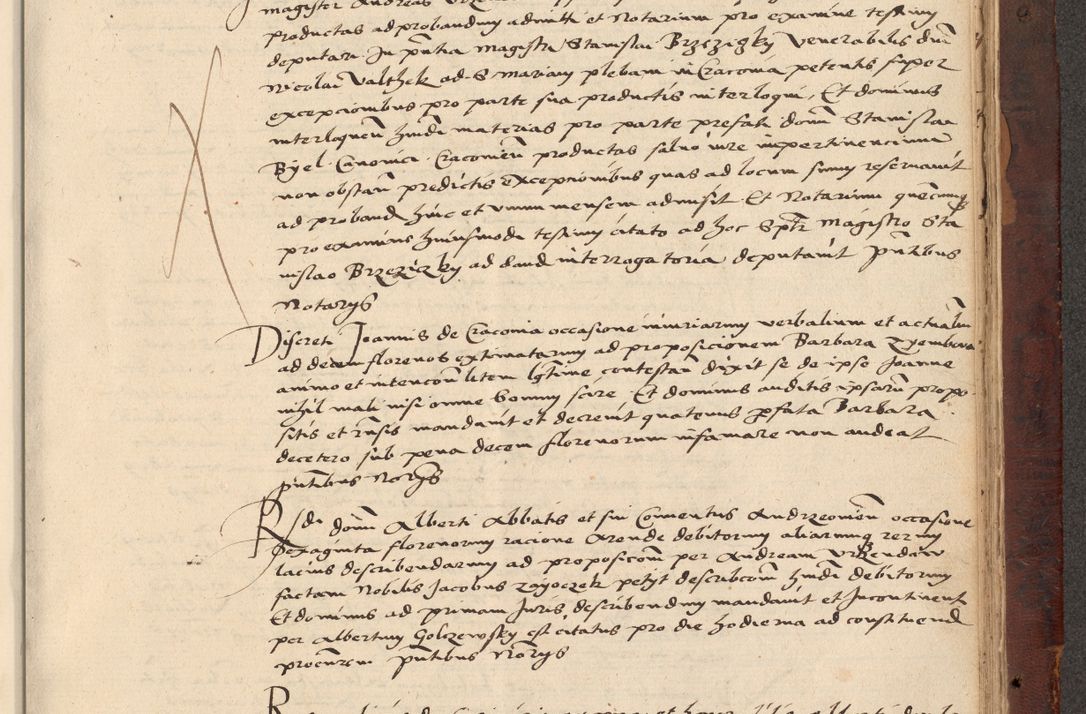 magister Andreas
productas ad probandum admitti et Notarium pro examine testium
deputari In pñtia magistri Stanislai Brzeziczky venerabilis dñi
Nicolai Valthek ad S mariam plebani in Cracovia petentis super
excepcionibus pro parte sua productis interloqui, Et dominus
interloquendo hmõi materias pro parte prefati domini Stanislai
Byel Canonici Cracovien productas salvo iure impertinencium
non obstañ predictis excepcionibus quas ad locum suum reservavit
ad proband hinc et unum mensem admisit Et Notarium quemcumq
pro examine huiusmodi testium citato ad hoc Sptr Magistro Sta
nislao Brzeziczky ad dand interrogatoria deputavit pñtibus
Notarys
Discreti Joannis de Cracovia occasione iniuriarum verbalium et actualiu
ad decem florenos extimatarum ad proposicionem Barbara
animo et intencone litem lgtime contestañ dixit se de ipso Joanne
nihil mali nisi omne bonum scire, Et dominus auditis ipsarum propo
sitis et rñsis mandavit et decrevit quatenus pfata Barbara
decetero sub pena decem florenorum infamare non audeat
pñtibus Norys
Rsdi domi Alberti Abbatis et sui Conventus Andrzeovien occasione
sexaginta florenorum racione Arende debitorum aliarumq rerum
lacius describendarum ad proposicom per Andream
factam Nobilis Jacobus zayoczek petyt describcom hmõi debitorum
Et dominus ad primam Juris describendum mandavit et Incontinent
per Albertum Golczewsky est citatus pro die hodierna ad constituend
procurem pñtibus Norys